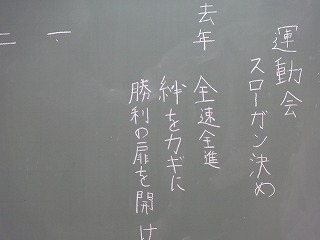 運動会
スローガン決め
去年 全速全進
絆をカギに
勝利の扉を開け
一.
二